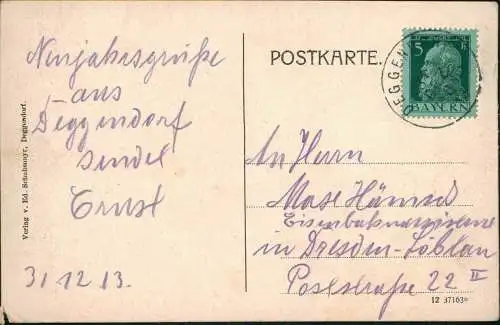 Neujahrsgrüße
aus
Deggendorf
sendet
Ernst
31 12 13.
Verlag v. Ed. Schubmayr, Deggendorf.
POSTKARTE.
5
BAYERN
DEGGEN
An Herrn
Max
in Dresden-Löbtau
Poststraße 22 II
12 37163